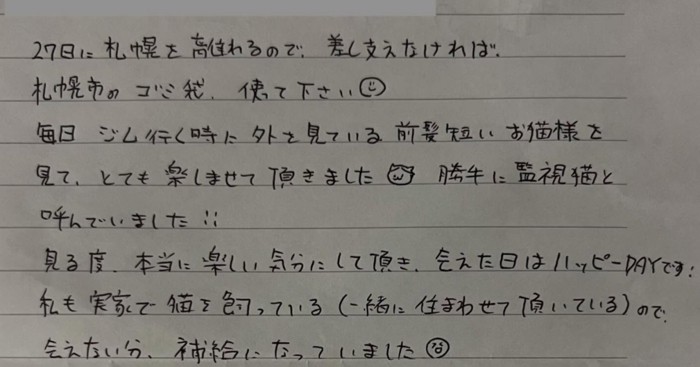 27日に札幌を離れるので、差し支えなければ、
札幌市のゴミ袋、使って下さい
毎日 ジム行く時に外を見ている前髪短いお猫様を
見て、とても楽しませて頂きました 勝手に監視猫と
呼んでいました!!
見る度、本当に楽しい気分にして頂き、会えた日はハッピーDAYです!
私も実家で猫を飼っている(一緒に住まわせて頂いている)ので、
会えない分、補給になっていました